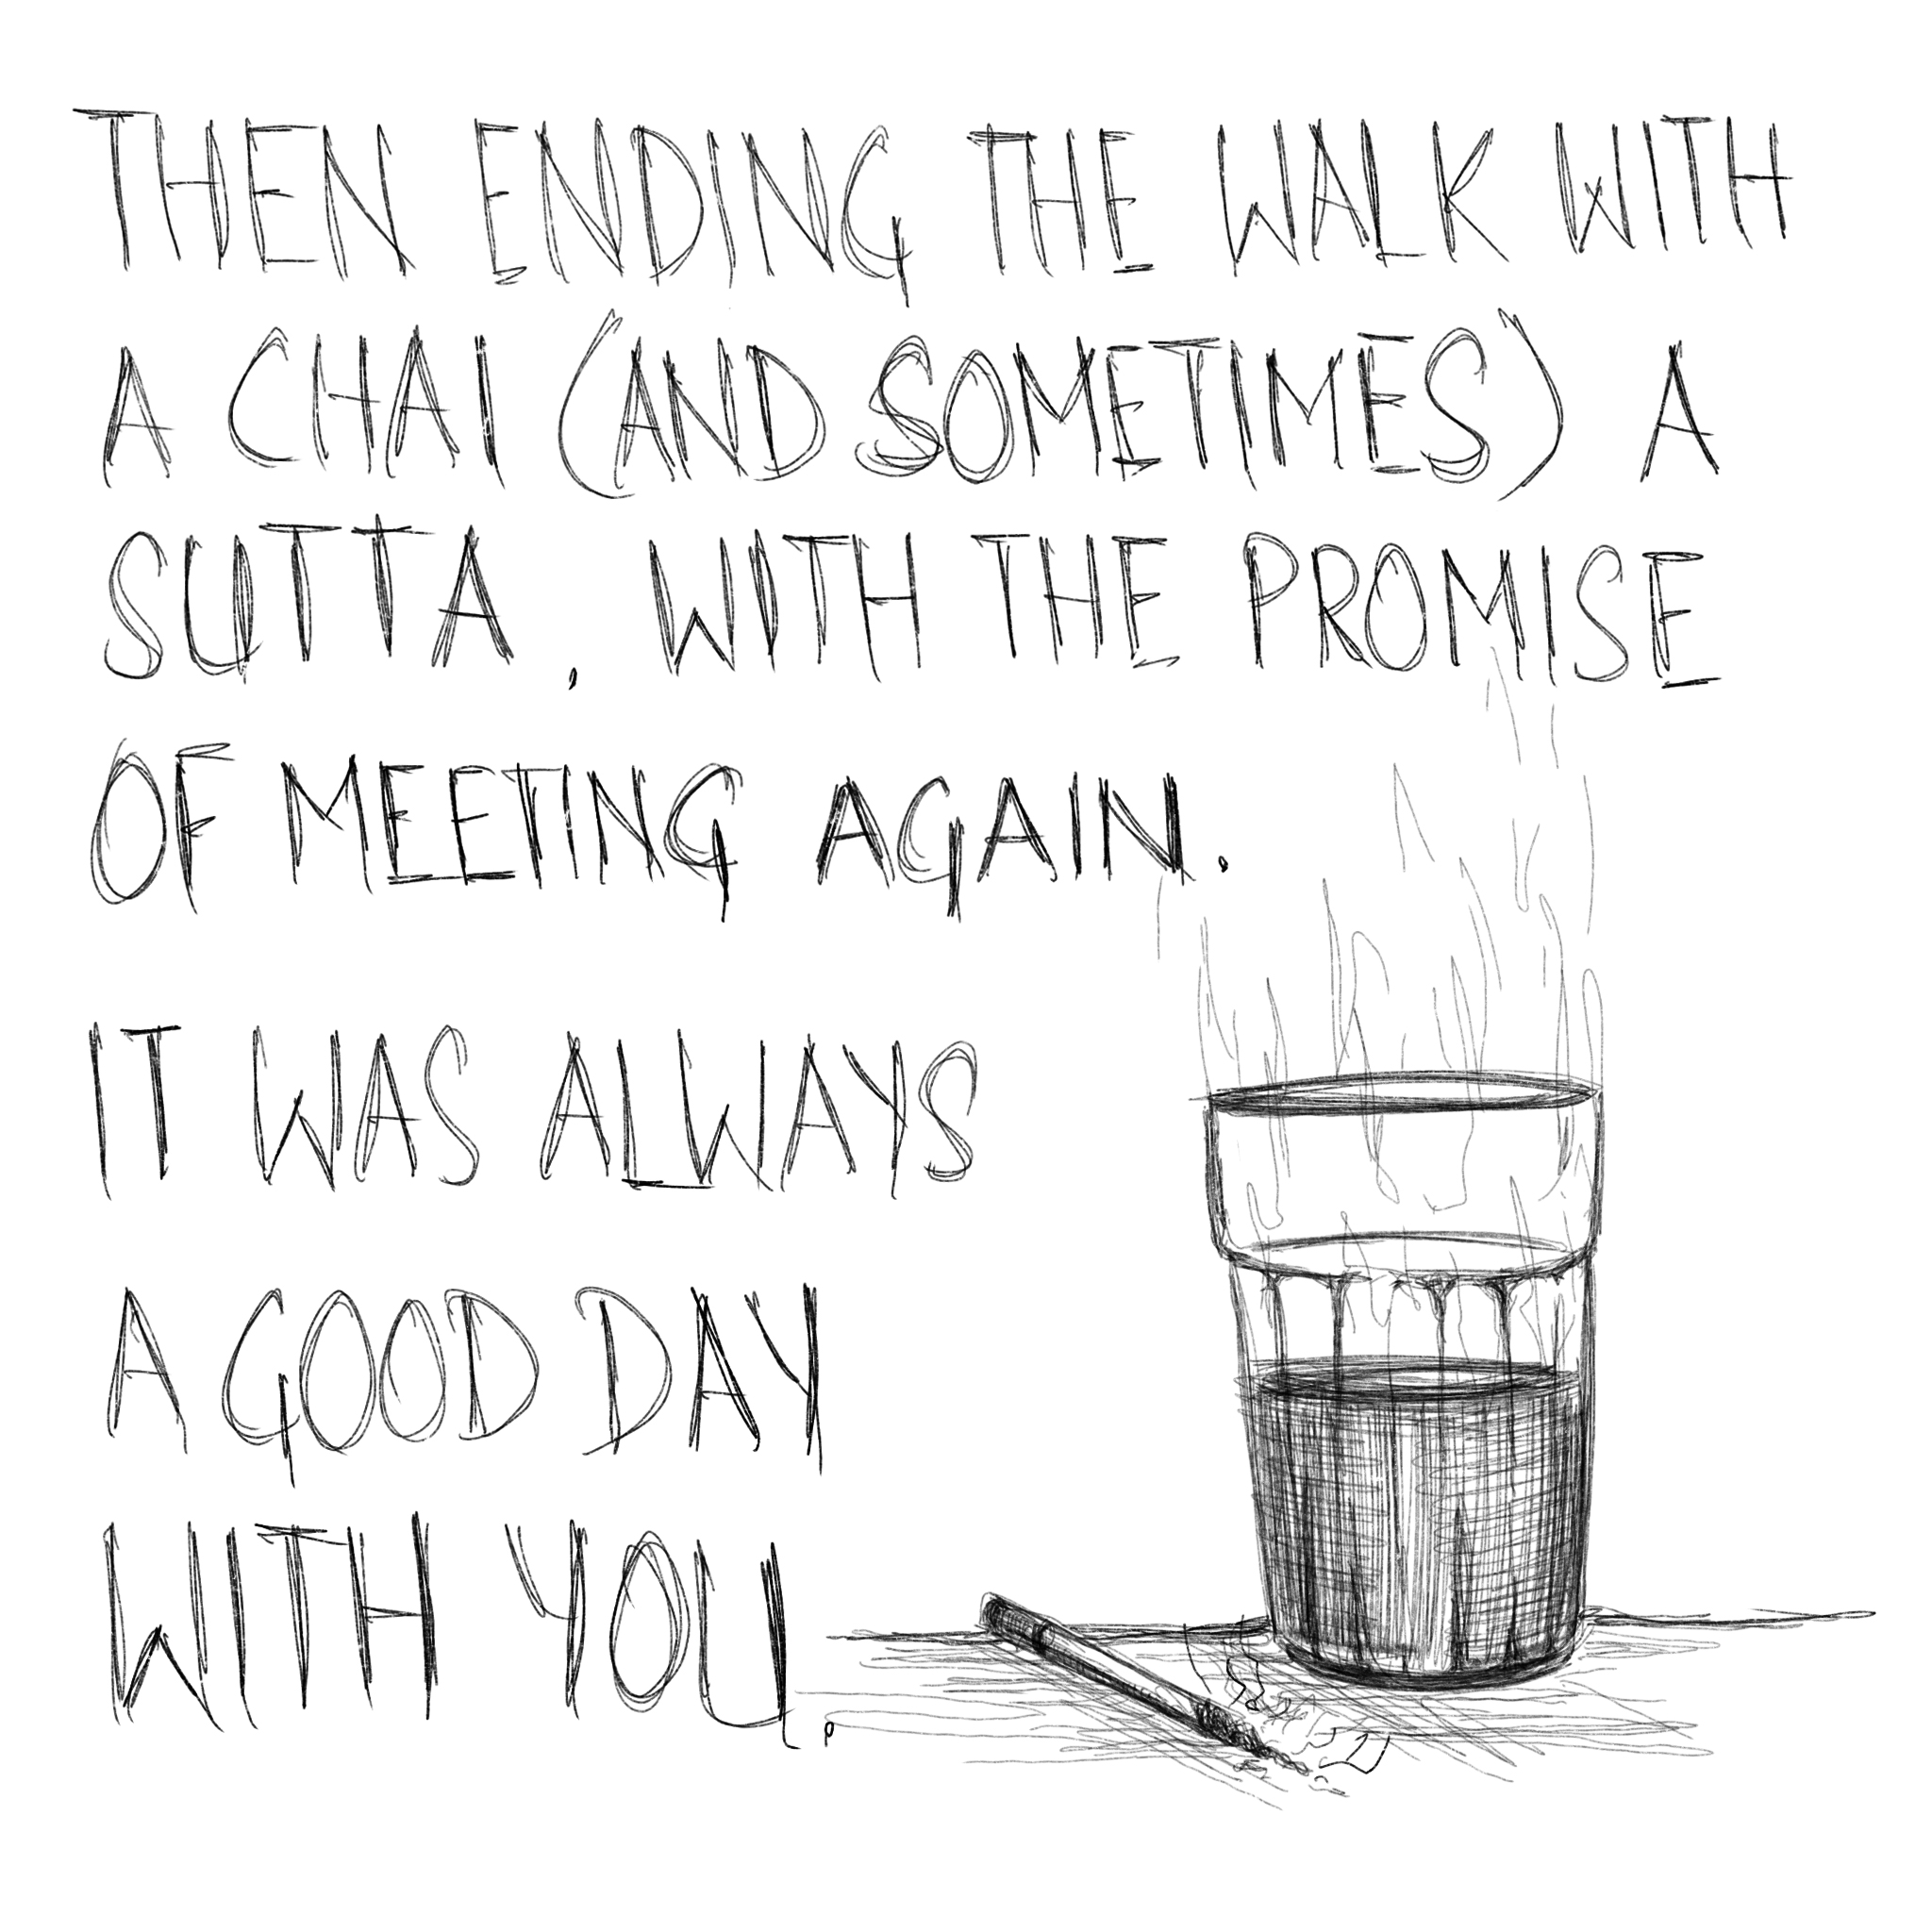 THEN ENDING THE WALK WITH
A CHAI (AND SOMETIMES) A
SUTTA, WITH THE PROMISE
OF MEETING AGAIN.
IT WAS ALWAYS
A GOOD DAY
WITH YOU.